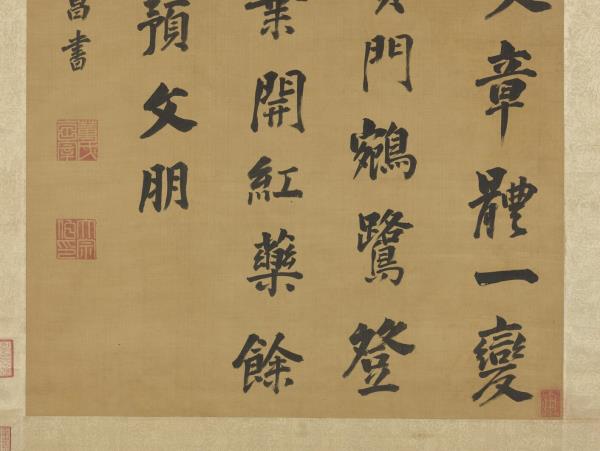 章體一變
門鵷鷺登
葉開紅藥餘
預父朋
昌書